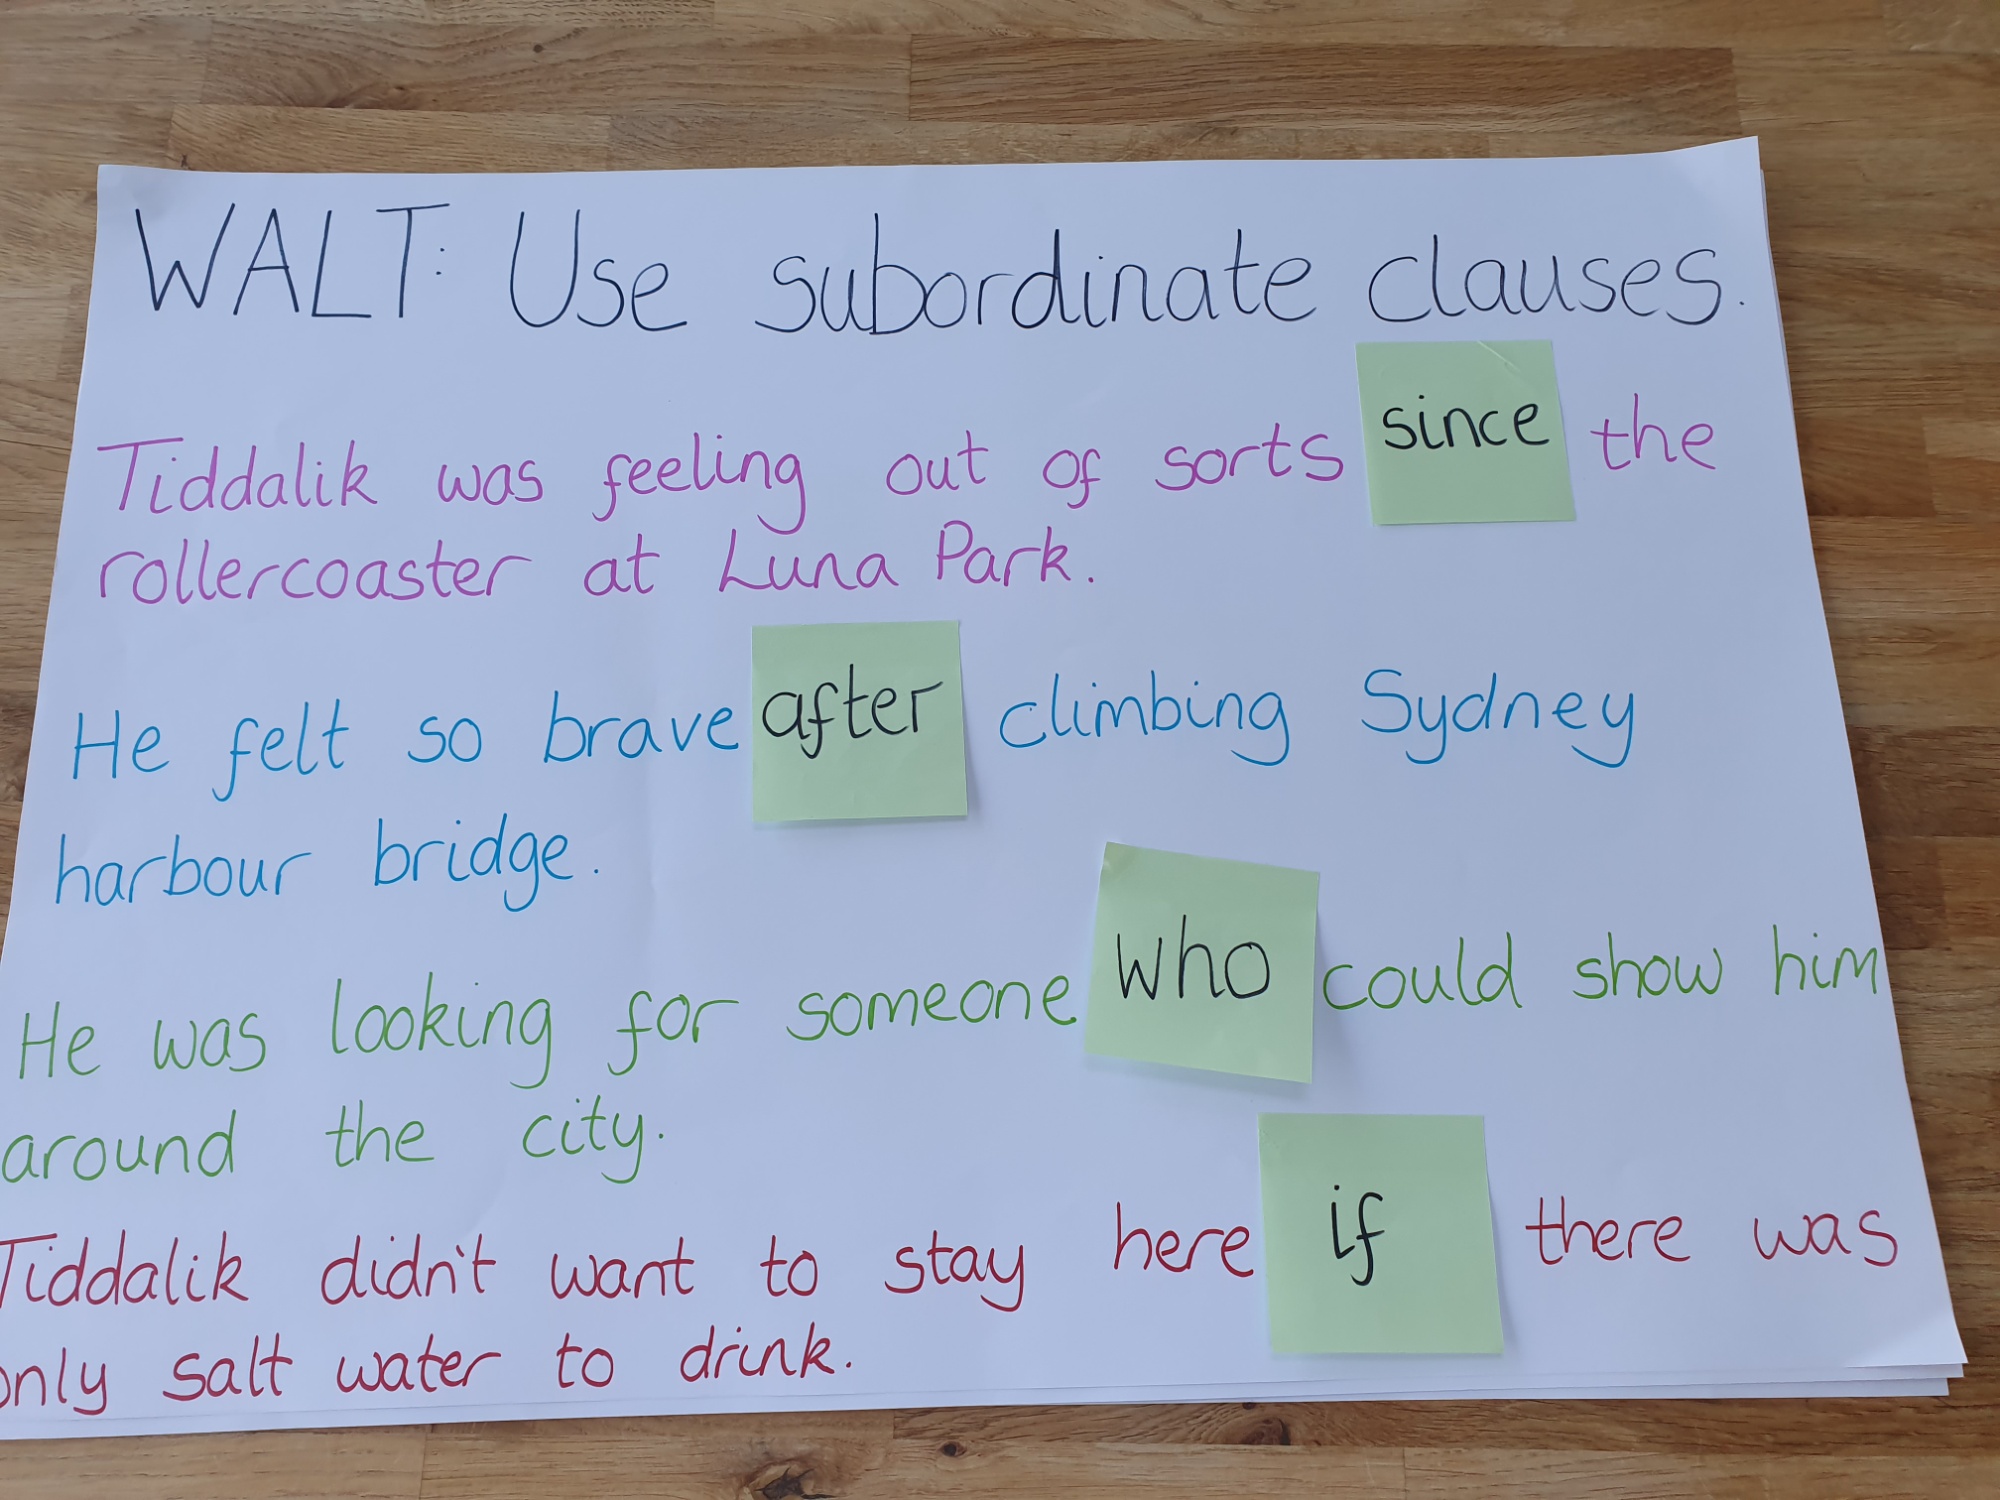 WALT: Use subordinate clauses.
Tiddalik was feeling out of sorts since the
rollercoaster at Luna Park.
He felt so brave after climbing Sydney
harbour bridge.
He was looking for someone who could show him
around the city.
Tiddalik didn't want to stay here if there was
only salt water to drink.